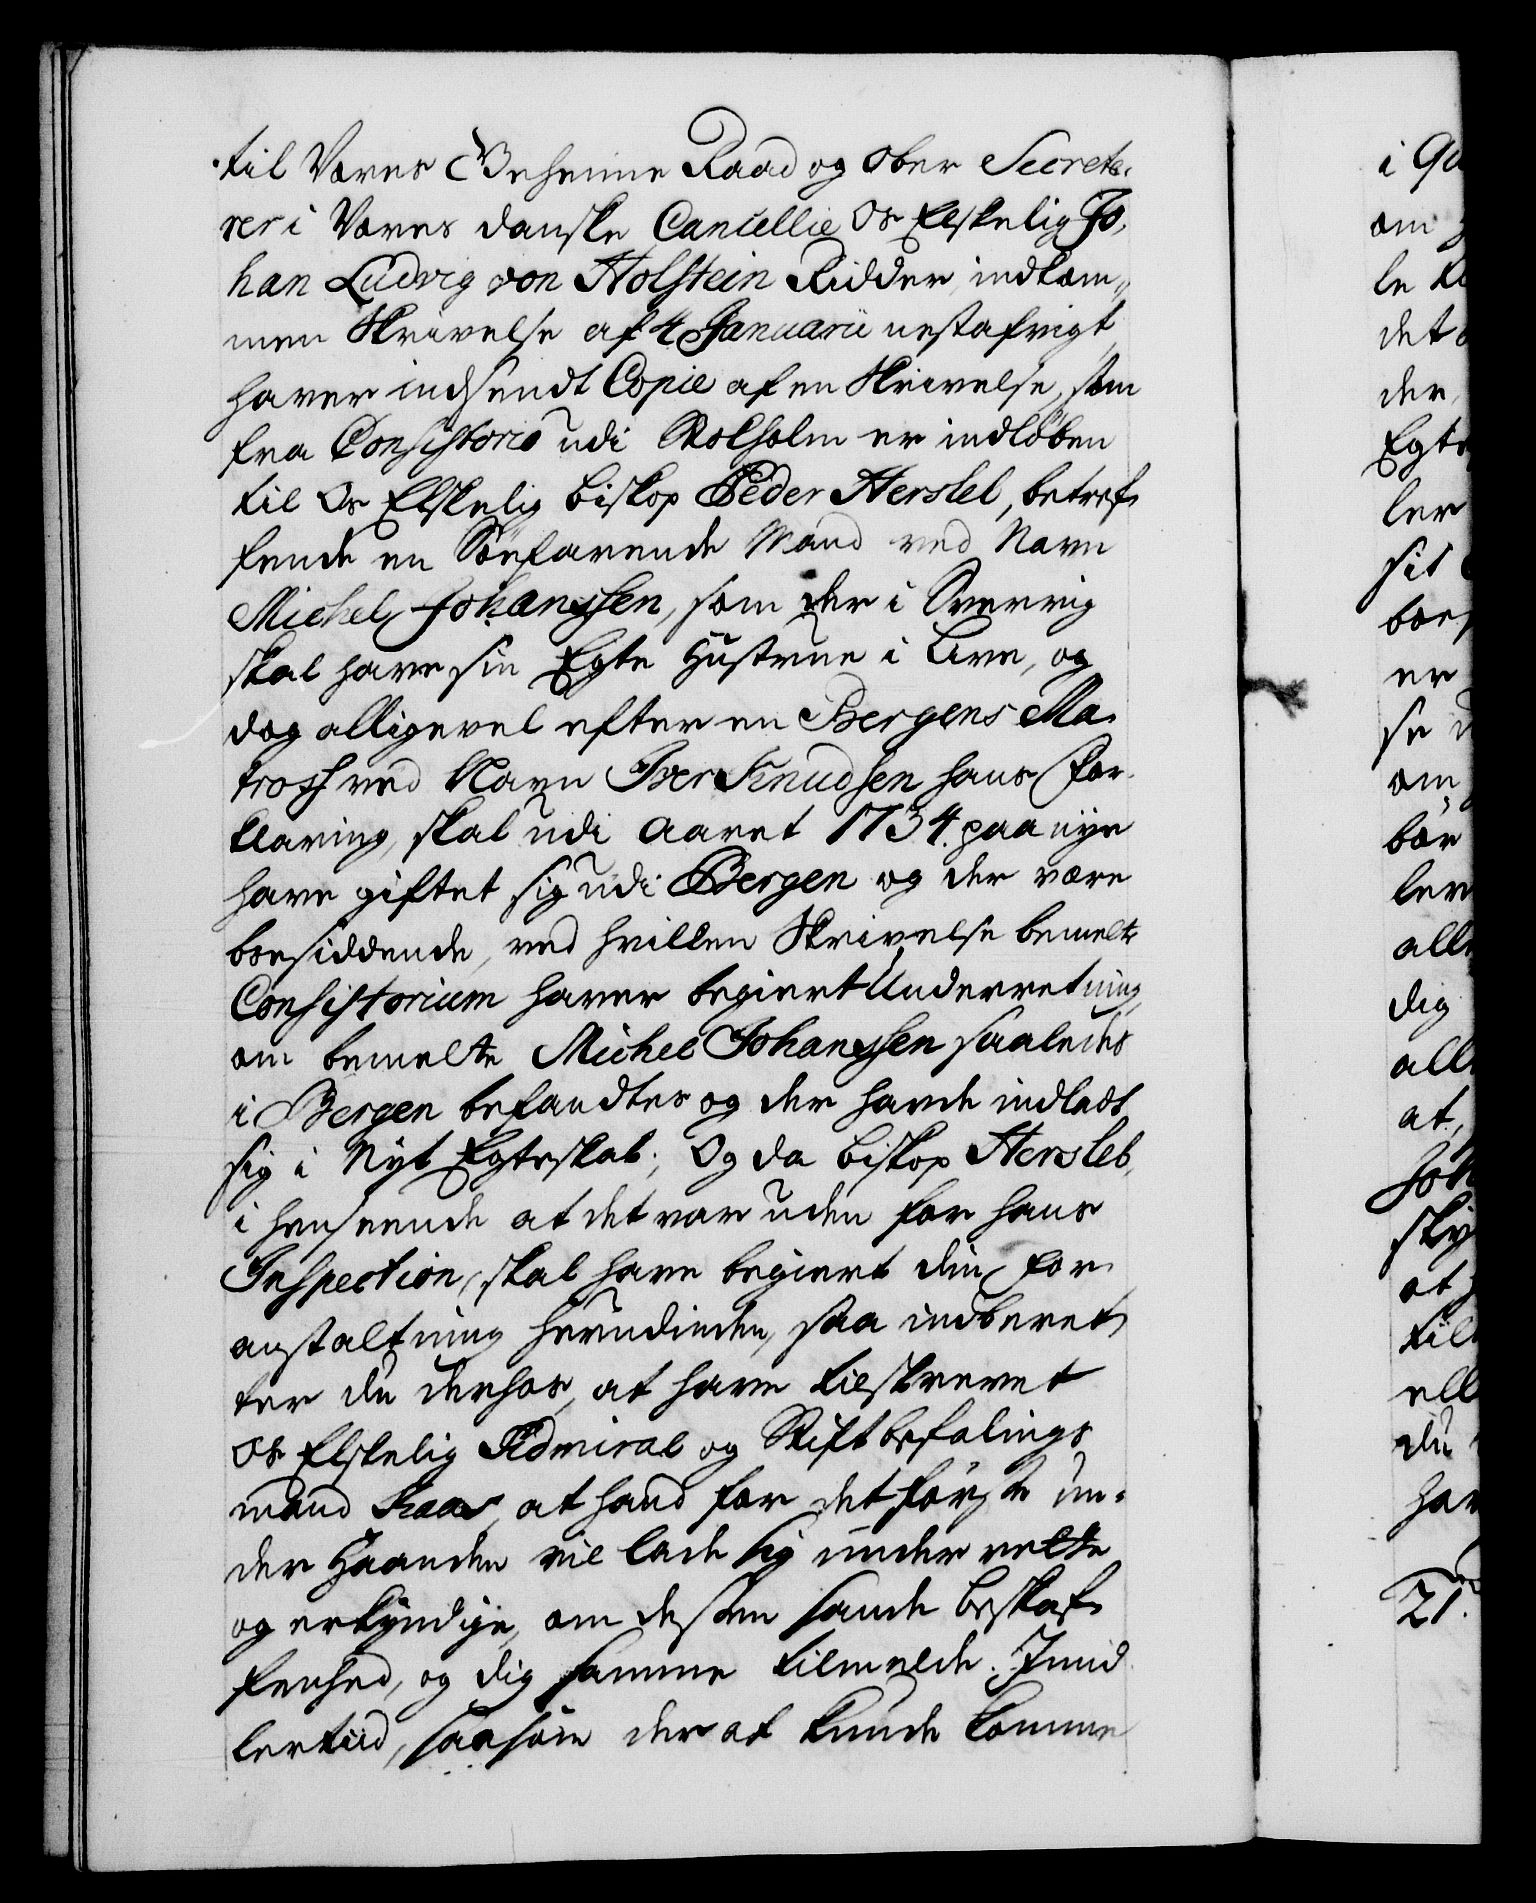 til Vores Geheime Raad og Ober Secrete-
rer i Vores danske Cancellie Os Elskelig Jo-
han Ludvig von Holstein Ridder, indkom-
men Skrivelse af 4 Januarii nestafvigt,
haver indsendt Copie af en Skrivelse, som
fra Consistorio udi Stokholm er indløben
til Os Elskelig Biskop Peder Hersleb, betref-
fende en Söefarende Mand ved Navn
Michel Johanssen, som der i Sverrig
skal have sin Egte Hustrue i Live, og
dog alligevel efter en Bergens Ma-
tross ved Navn Iver Knudsen hans For-
klaring, skal udi Aaret 1734. paa nye
have giftet sig udi Bergen og der være
boesiddende, ved hvilken Skrivelse bemelte
Consistorium haver begiert Underretning,
om bemelte Michel Johanssen saaledes
i Bergen befandtes og der havde indladt
sig i Nyt Egteskab; Og da Biskop Hersleb,
i henseende at det var uden for hans
Inspection, skal have begiert din For-
anstaltning herudinden, saa indberet-
ter du derhos, at have tilskrevet
Os Elskelig Admiral og Stiftbefalings
mand Kaas, at hand for det förste un-
der Haanden vil lade sig underrette
og erkyndige, om dessen sande Beskaf-
fenhed, og dig samme tilmelde. Imid-
lertiid, saasom der at kunde komme
i
om
le
det
der
Egte
ler
sit
boe
er
se
om
bör
ler
alle
dig
alle
at,
Joh
sky
at
til
ell
du
har
21.